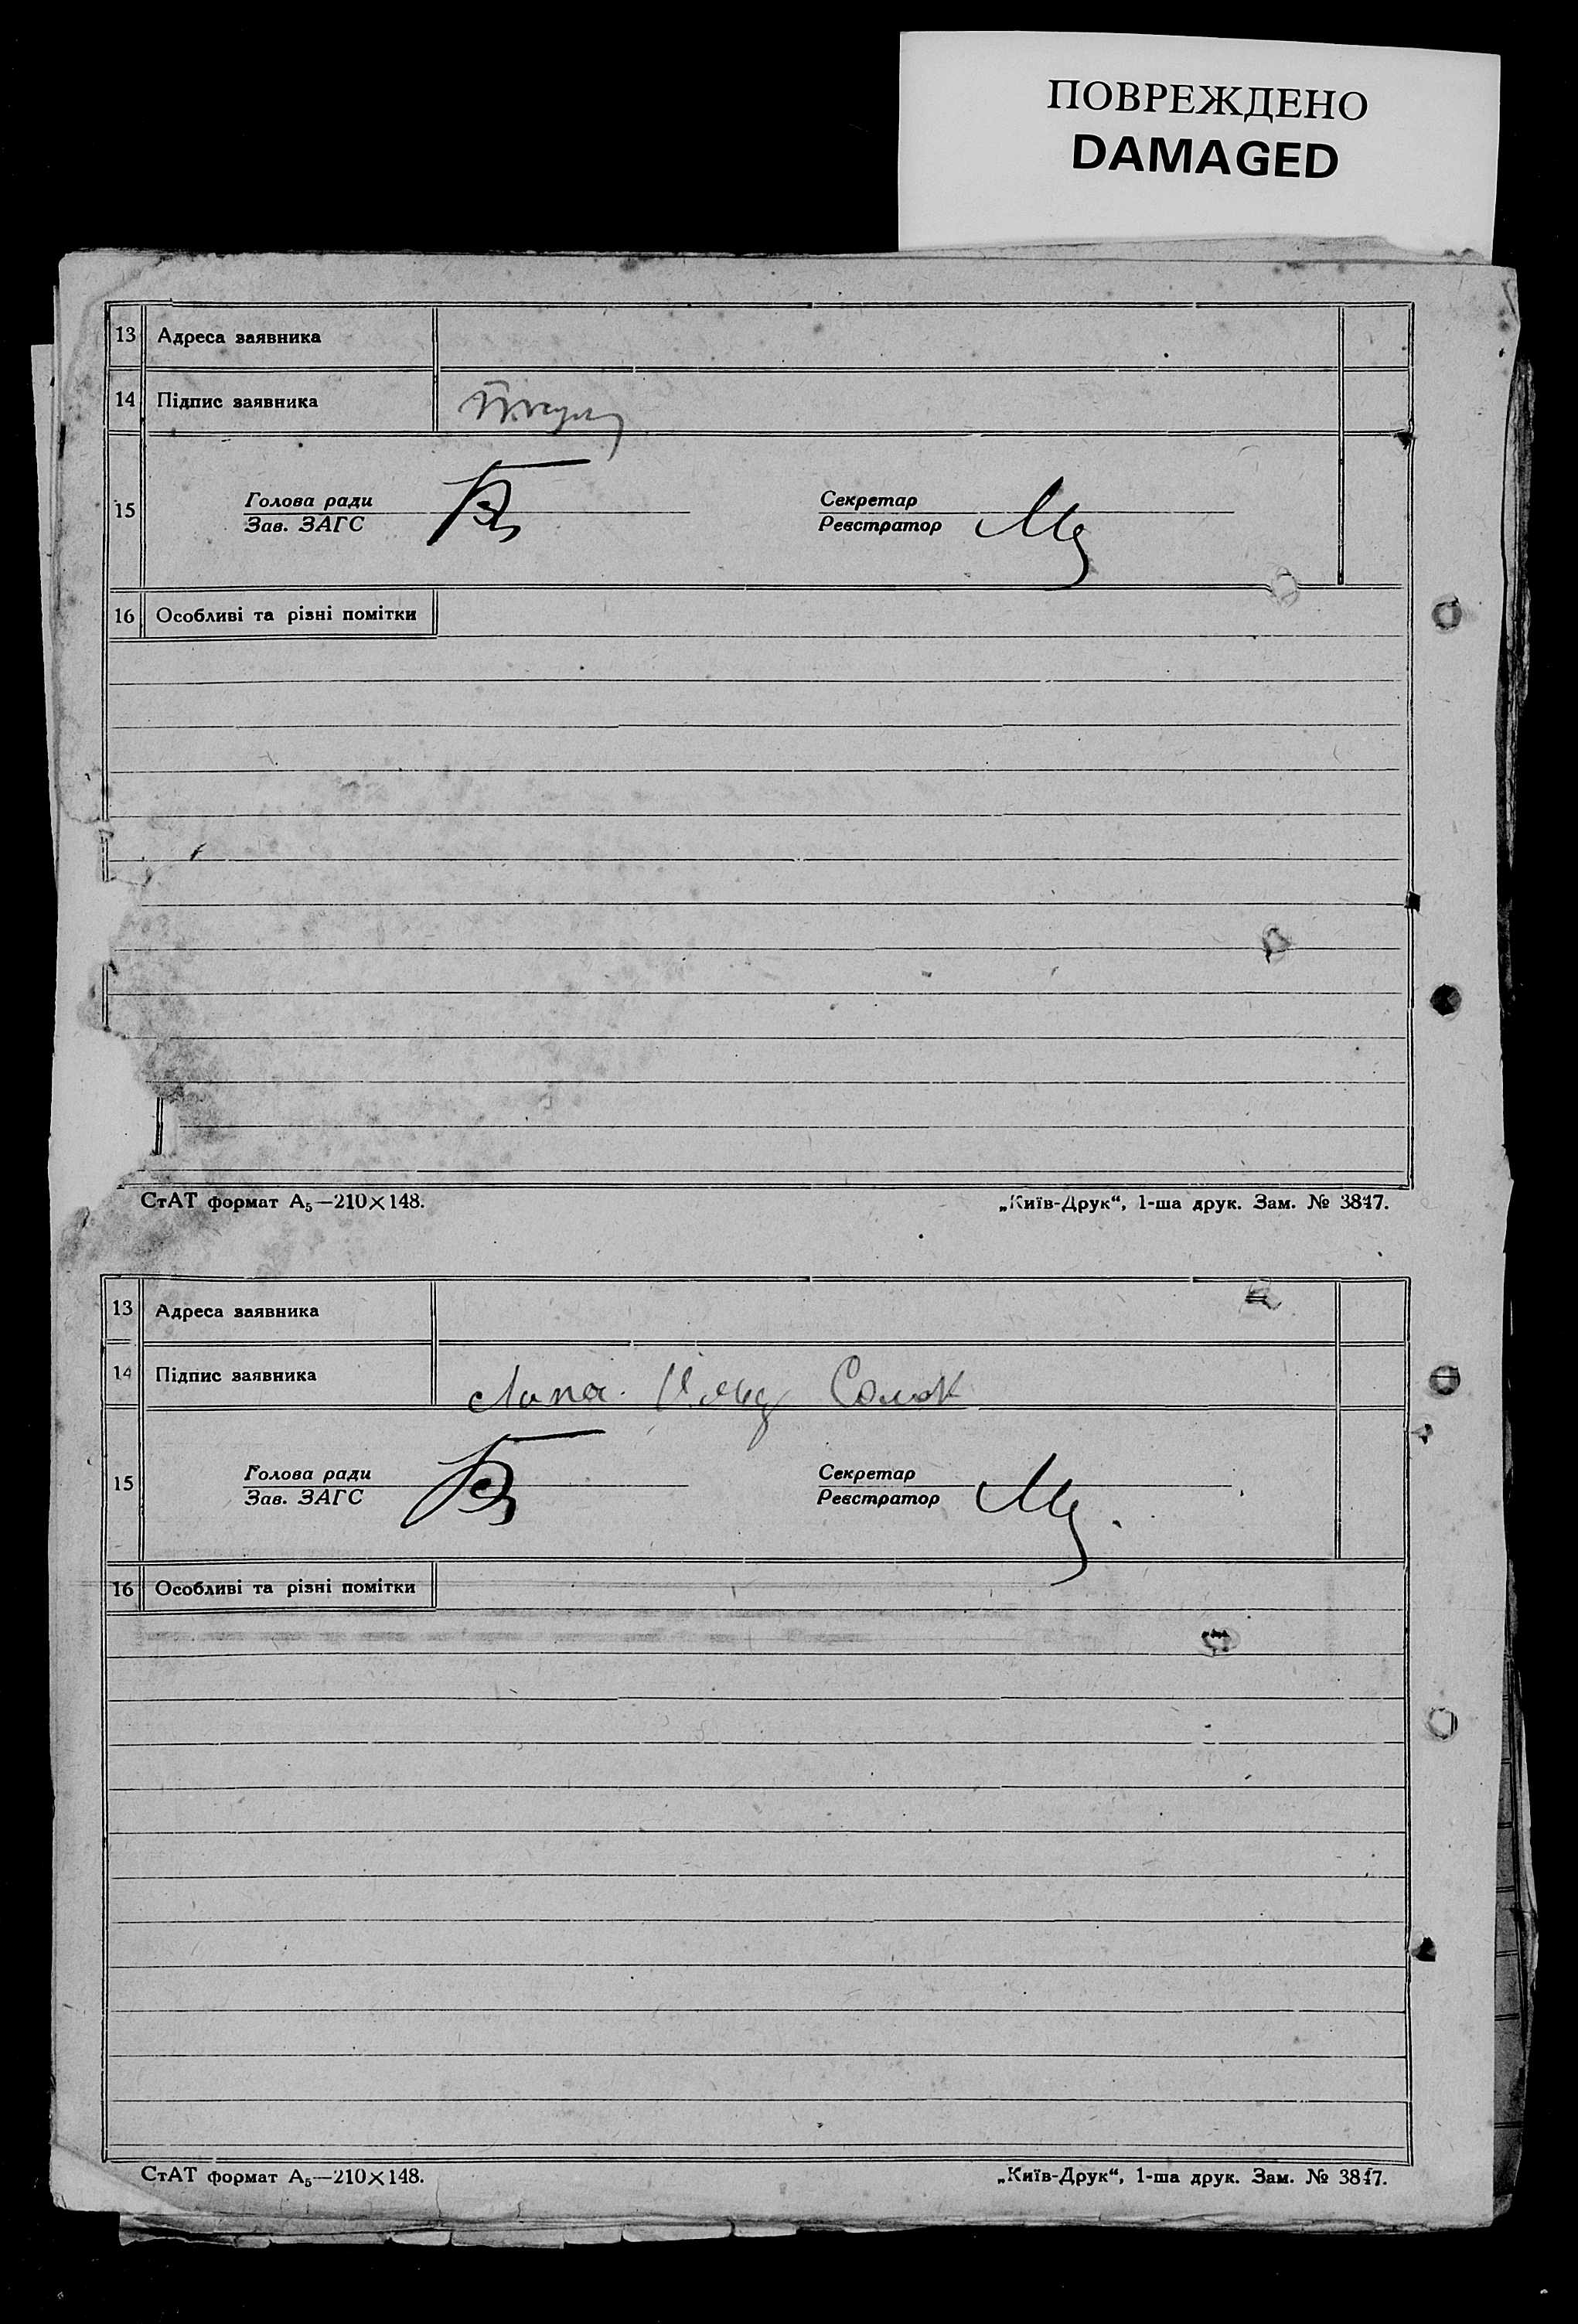 ПОВРЕЖДЕНО
DAMAGED
13 Адреса заявника
14 Підпис заявника
15 Голова ради
Зав. ЗАГС
Секретар
Реєстратор
16 Особливі та різні помітки
СтАТ формат А₅—210×148. „Київ-Друк“, 1-ша друк. Зам. № 3847.
13 Адреса заявника
14 Підпис заявника
15 Голова ради
Зав. ЗАГС
Секретар
Реєстратор
16 Особливі та різні помітки
СтАТ формат А₅—210×148. „Київ-Друк“, 1-ша друк. Зам. № 3847.